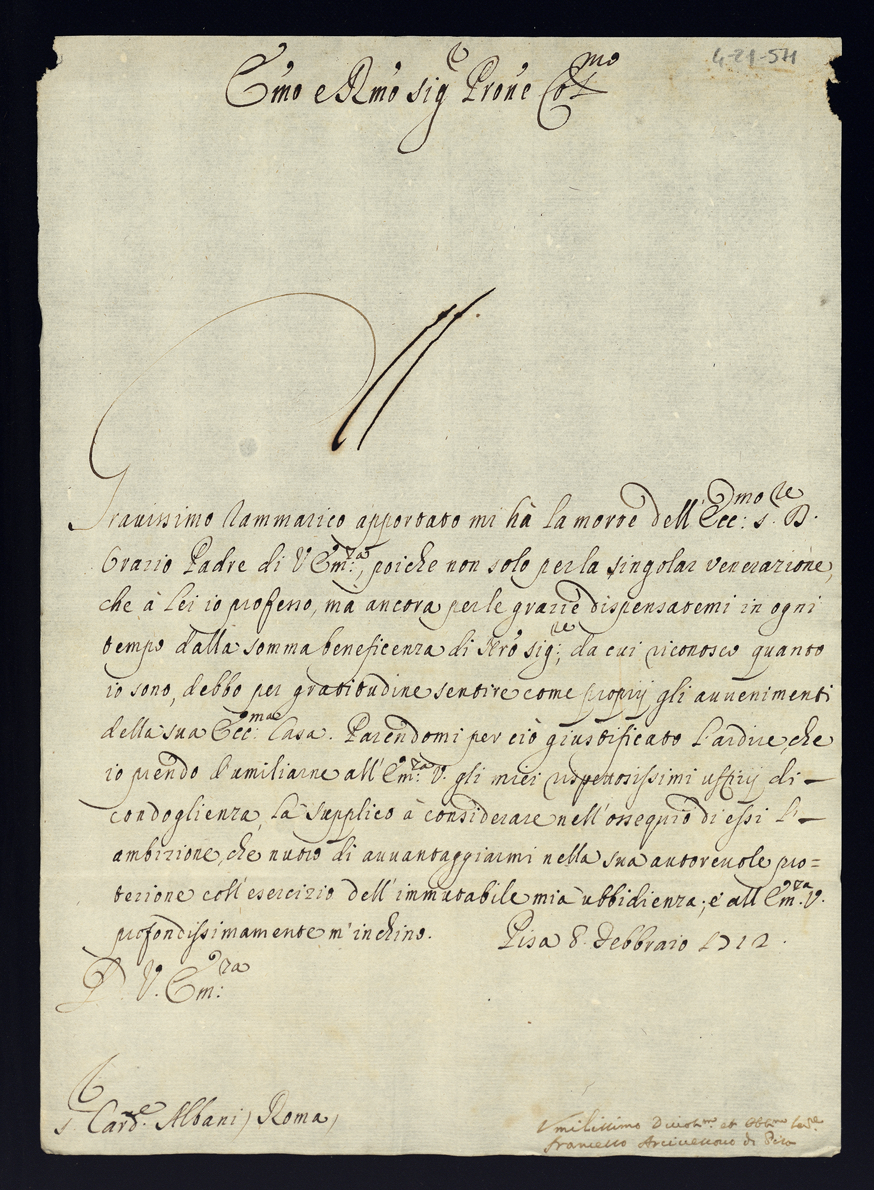 4-21-54
Em̃o e Rm̃o Sig.r Pron̄e Col.mo
Gravissimo rammarico apportato mi hà la morte dell' Ecc:mo S.re D.
Orazio Padre di V Em:za, poiche non solo per la singolar venerazione,
che à Lei io professo, mà ancora per le grazie dispensatemi in ogni
tempo dalla somma beneficenza di Nr̃o Sig:re, da cui riconosco quanto
io sono, debbo per gratitudine sentire come proprij gli avvenimenti
della sua Ecc:ma Casa. Parendomi per ciò giustificato l'ardire, che
io prendo d'umiliarne all' Em:za V. gli miei rispettosissimi uffizij di –
condoglienza, La supplico à considerare nell' ossequio di essi l' –
ambizione, che nutro di avvantaggiarmi nella sua autorevole pro=
tezione coll' esercizio dell' immutabile mia ubbidienza; e all' Em:za V.
profondissimamente m' inchino. Pisa 8. Febbraio 1712.
D. V. Em:za
S.r Card.le Albani, Roma,
Vmilissimo Divot.mo et Obb.mo Ser.e
Francesco Arcivescovo di Pisa